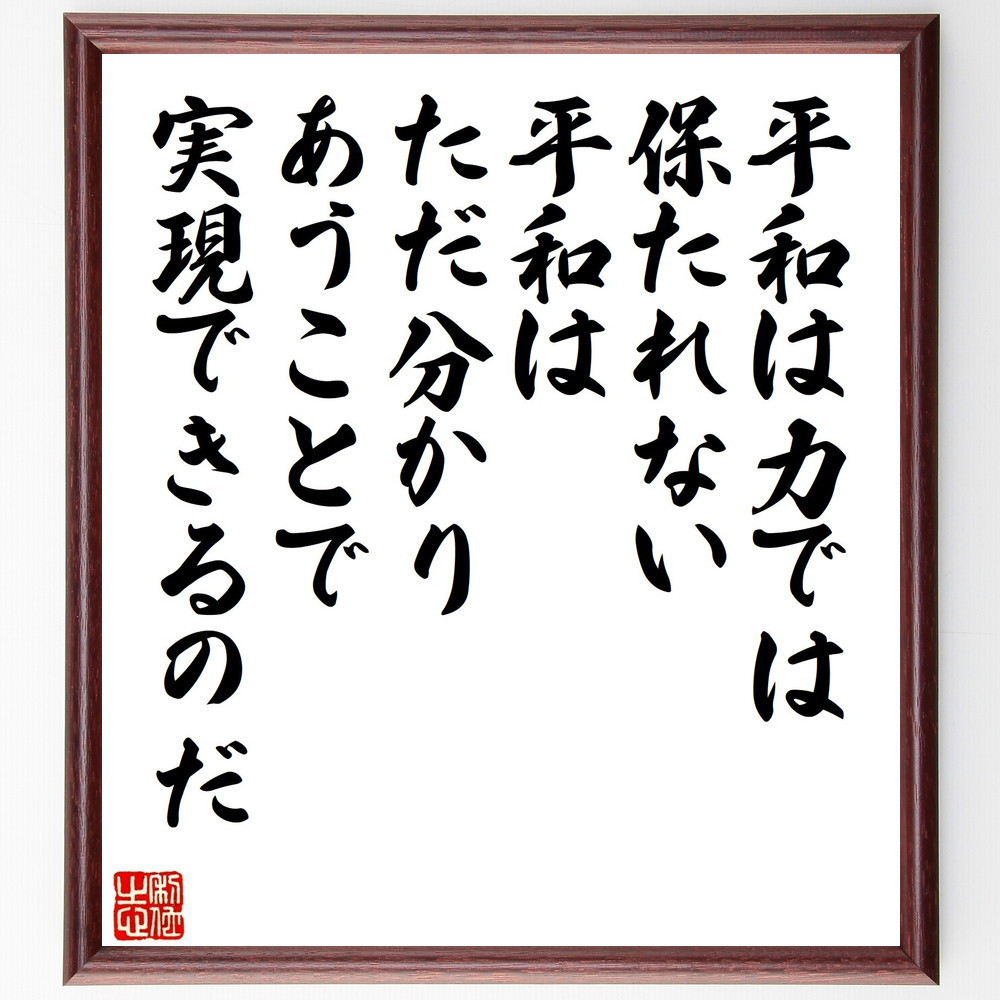 平和は力では
保たれない
平和は
ただ分かり
あうことで
実現できるのだ